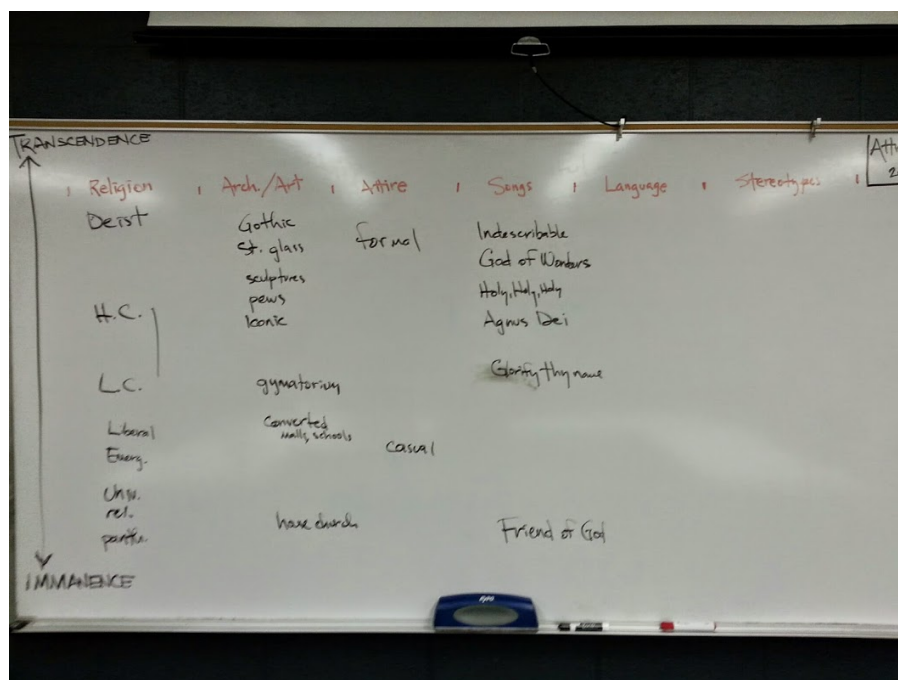 TRANSCENDENCE
Religion Arch./Art Attire Songs Language Stereotypes
Deist
H.C.
L.C.
Liberal
Emerg.
Univ.
rel.
panth.
Gothic
St. glass
sculptures
pews
Iconic
gymatorium
Converted
malls, schools
house church
formal
casual
Indescribable
God of Wonders
Holy, Holy, Holy
Agnus Dei
Glorify thy name
Friend of God
IMMANENCE
expo